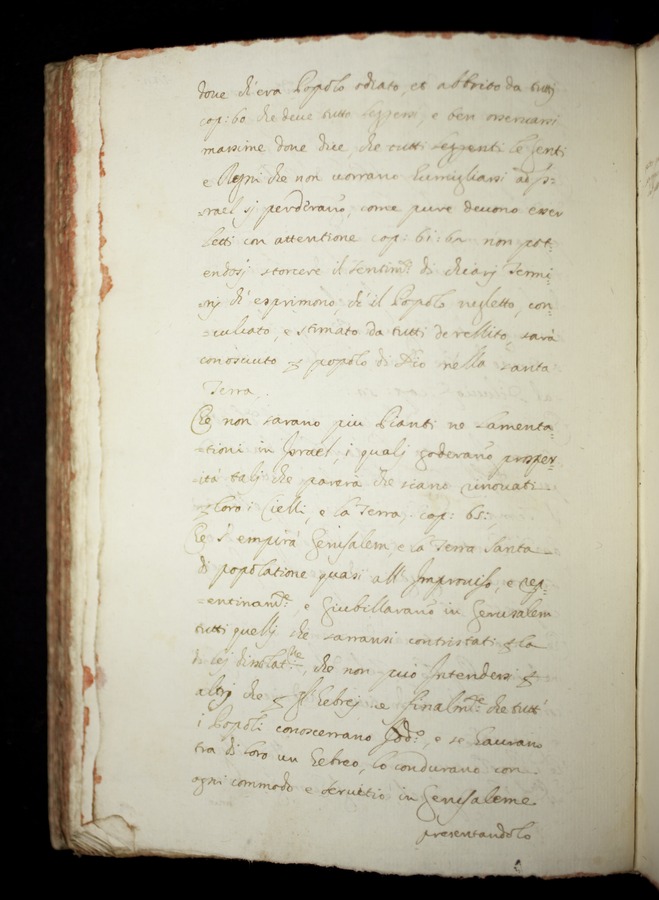 dove ch'era Popolo odiato, et abborito da tutti
cap: 60 che deve tutto leggersi, e ben osservarsi
massime dove dice, che tutti le genti
e Regni che non vorrano humigliarsi ad Is=
=rael si perderano, come pure devono esser
letti con attentione cap: 61: 62 non pot=
endosi storcere il sentim.to di chiari Termi=
=ni ch'esprimono, ch'il Popolo negletto, con=
=culcato, e stimato da tutti derellito, sarà
conosciuto popolo di Dio nella santa
Terra,.
Che non sarano piu Pianti ne lamenta=
=tioni in Israel, i quali goderano prosper=
=ità tali che parerà che siano rinovati
loro i Cielli, e la Terra, cap: 65:
Che s'empirà Gerusalem e la Terra Santa
di popolatione quasi all'Improviso, e rep=
=entinam.te, e Giubillarano in Gerusalem
tutti quelli che sarransi contristati la
di lei, che non può Intendersi
altri che gl'Hebrei e finalm.te che tutt'
i Popoli conoscerrano Iddo, e se havrano
tra di loro un Hebreo, lo condurano con
ogni commodo e servitio in Gerusaleme
presentandolo